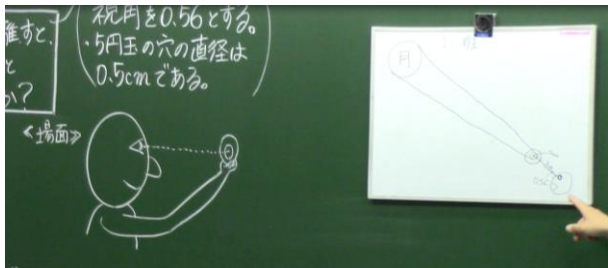 推すと、
と
か?
視角を0.56とする。
・5円玉の穴の直径は
0.5cmである。
≪場面≫
月